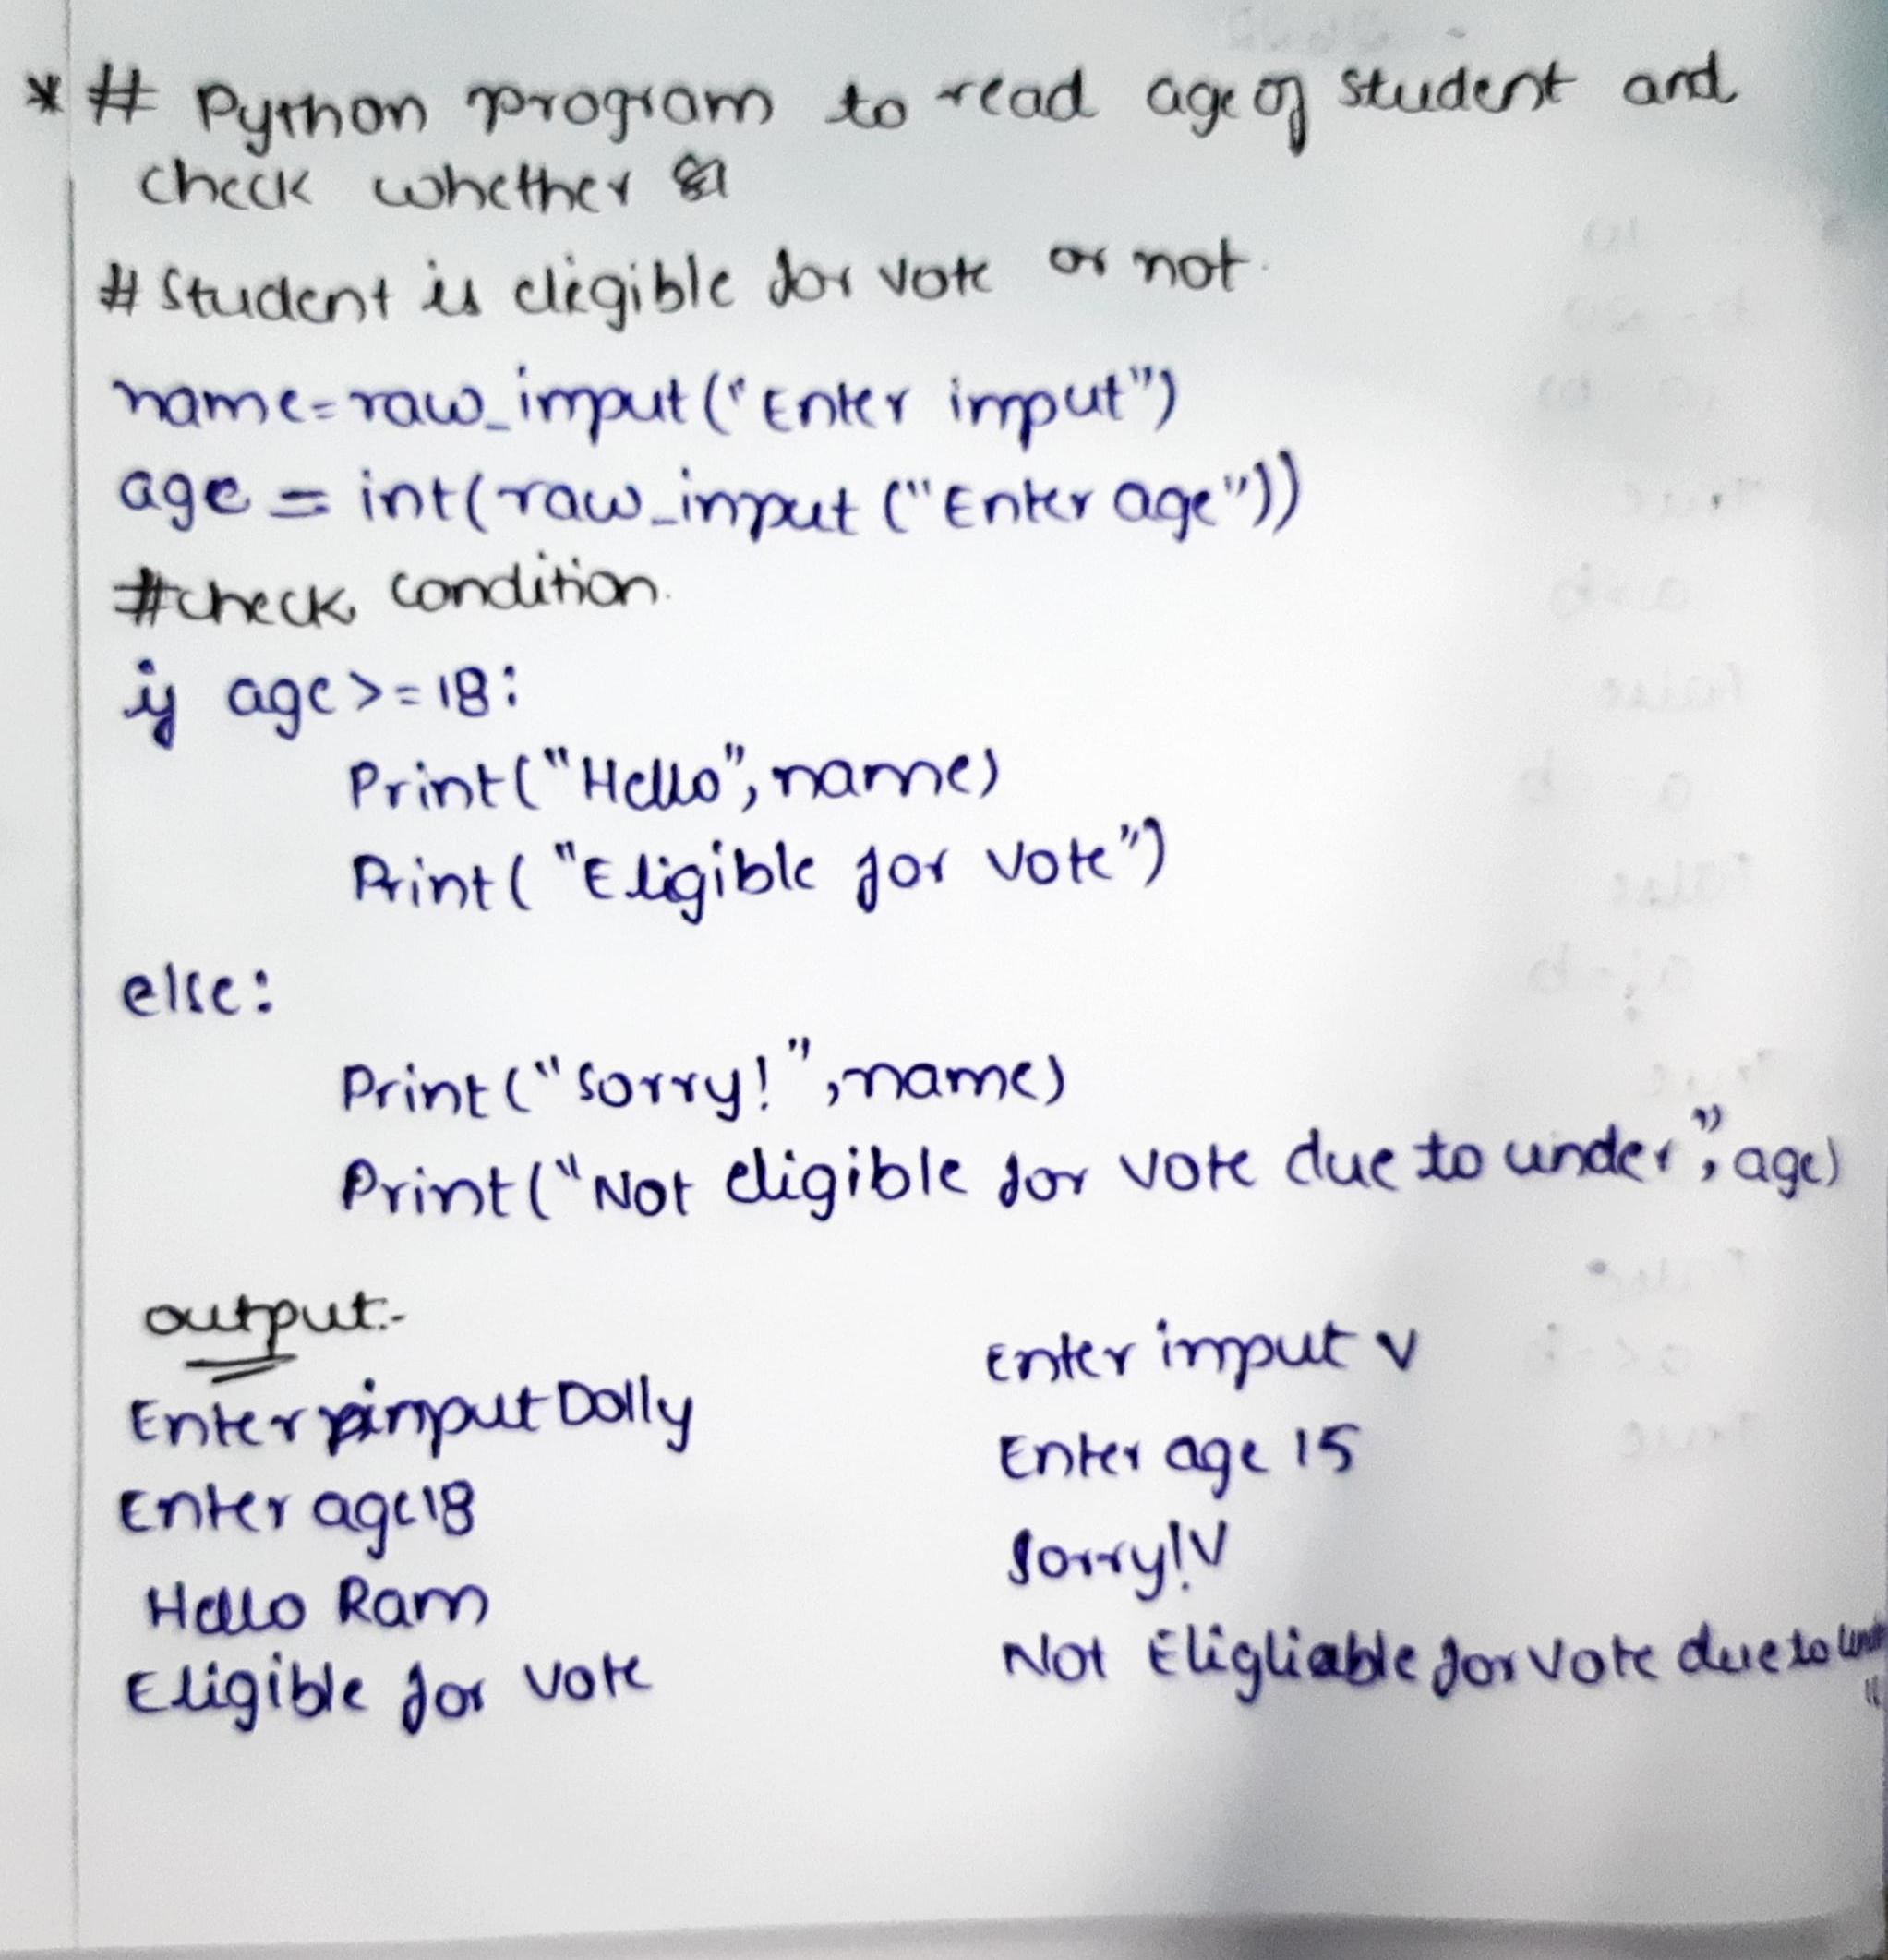 * # Python program to read age of student and
check whether
# Student is eligible for vote or not.
name=raw_input("Enter input")
age = int(raw_input ("Enter age"))
#check condition.
if age>=18:
Print("Hello", name)
Print("Eligible for vote")
else:
Print("Sorry!", name)
Print("Not eligible for vote due to under", age)
output:-
Enter input Dolly
Enter age18
Hello Ram
Eligible for vote
Enter input v
Enter age 15
Sorry!V
Not Eligliable for vote due to